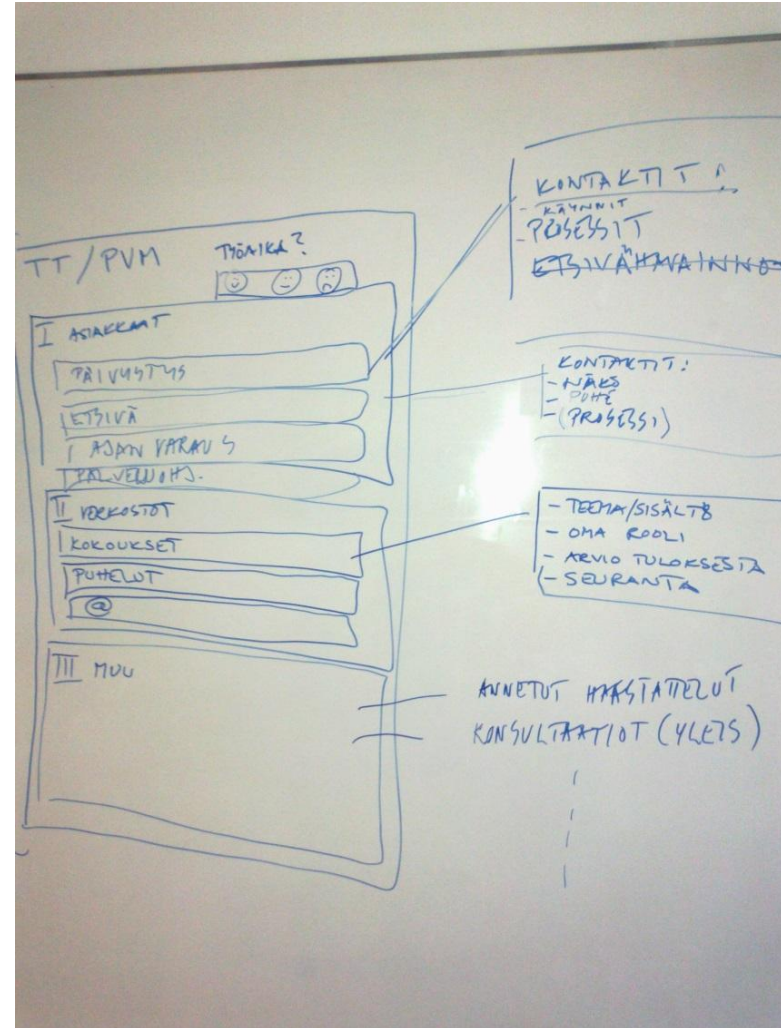 TT/PVM
TYÖAIKA?
I ASIAKKAAT
PÄIVYSTYS
ETSIVÄ
AJANVARAUS
PALVELUOHJ.
II VERKOSTOT
KOKOUKSET
PUHELUT
@
III MUU
KONTAKTIT:
- KÄYNNIT
- PROSESSIT
ETSIVÄHAVAINNO
KONTAKTIT:
- NÄKS
- PUHE
- (PROSESSI)
- TEEMA/SISÄLTÖ
- OMA ROOLI
- ARVIO TULOKSESTA
- SEURANTA
ANNETUT HAASTATTELUT
KONSULTAATIOT (YLEIS)